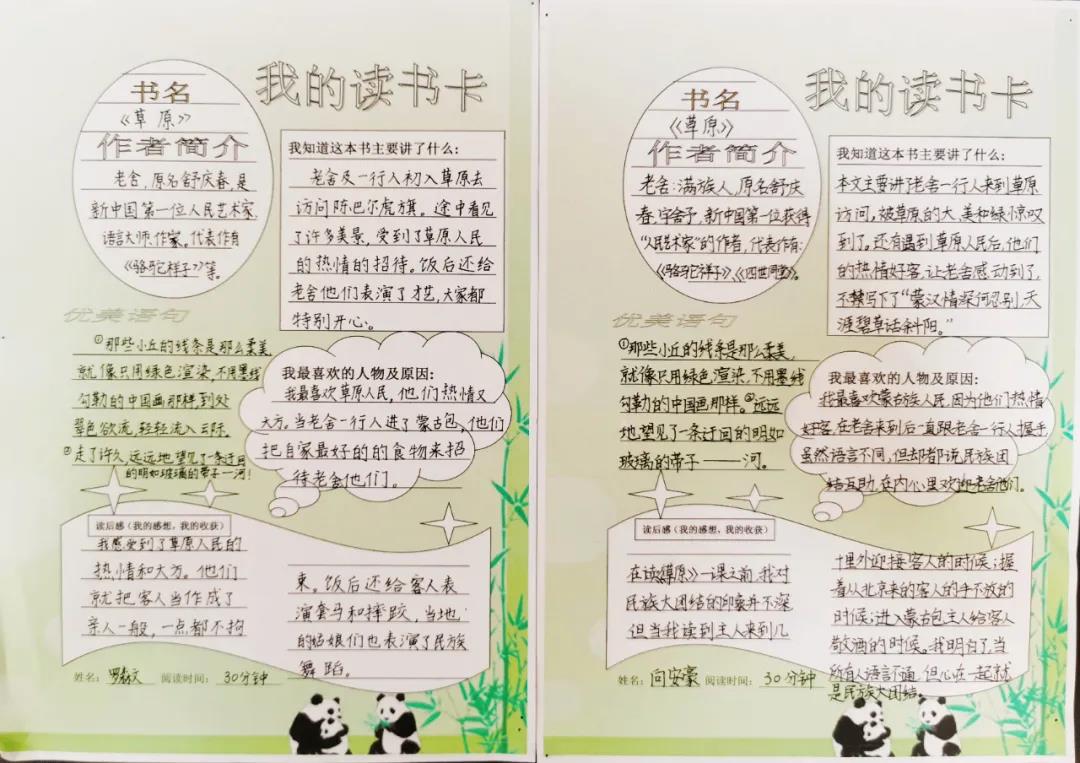 我的读书卡
书名
《草原》
作者简介
老舍,原名舒庆春,是
新中国第一位人民艺术家,
语言大师,作家。代表作有
《骆驼祥子》等。
我知道这本书主要讲了什么:
老舍及一行人初入草原去
访问陈巴尔虎旗。途中看见
了许多美景,受到了草原人民
的热情的招待。饭后还给
老舍他们表演了才艺,大家都
特别开心。
优美语句
①那些小丘的线条是那么柔美,
就像只用绿色渲染,不用墨线
勾勒的中国画那样,到处
翠色欲流,轻轻流入云际。
②走了许久,远远地望见了一条迂回
的明如玻璃的带子—河!
我最喜欢的人物及原因:
我最喜欢草原人民,他们热情又
大方。当老舍一行人进了蒙古包,他们
把自家最好的的食物来招
待老舍他们。
读后感(我的感想,我的收获)
我感受到了草原人民的
热情和大方。他们
就把客人当作成了
亲人一般,一点都不拘
束。饭后还给客人表
演套马和摔跤,当地
的姑娘们也表演了民族
舞蹈。
姓名: 阅读时间: 30分钟
我的读书卡
书名
《草原》
作者简介
老舍:满族人,原名舒庆
春,字舍予,新中国第一位获得
“人民艺术家”的作者,代表作有:
《骆驼祥子》、《四世同堂》。
我知道这本书主要讲了什么:
本文主要讲了老舍一行人来到草原
访问,被草原的大、美和绿惊叹
到了。还有遇到草原人民后,他们
的热情好客,让老舍感动到了,
不禁写下了“蒙汉情深何忍别,天
涯碧草话斜阳。”
优美语句
①那些小丘的线条是那么柔美,
就像只用绿色渲染,不用墨线
勾勒的中国画那样。②远远
地望见了一条迂回的明如
玻璃的带子——河。
我最喜欢的人物及原因:
我最喜欢蒙古族人民,因为他们热情
好客,在老舍来到后一直跟老舍一行人握手
虽然语言不同,但却都说民族团
结互助,在内心里欢迎老舍他们。
读后感(我的感想,我的收获)
在读《草原》一课之前,我对
民族大团结的印象并不深,
但当我读到主人来到几
十里外迎接客人的时候;握
着从北京来的客人的手不放的
时候;进入蒙古包主人给客人
敬酒的时候。我明白了,当
所有人语言不通,但心在一起就
是民族大团结。
姓名:向安豪 阅读时间: 30分钟